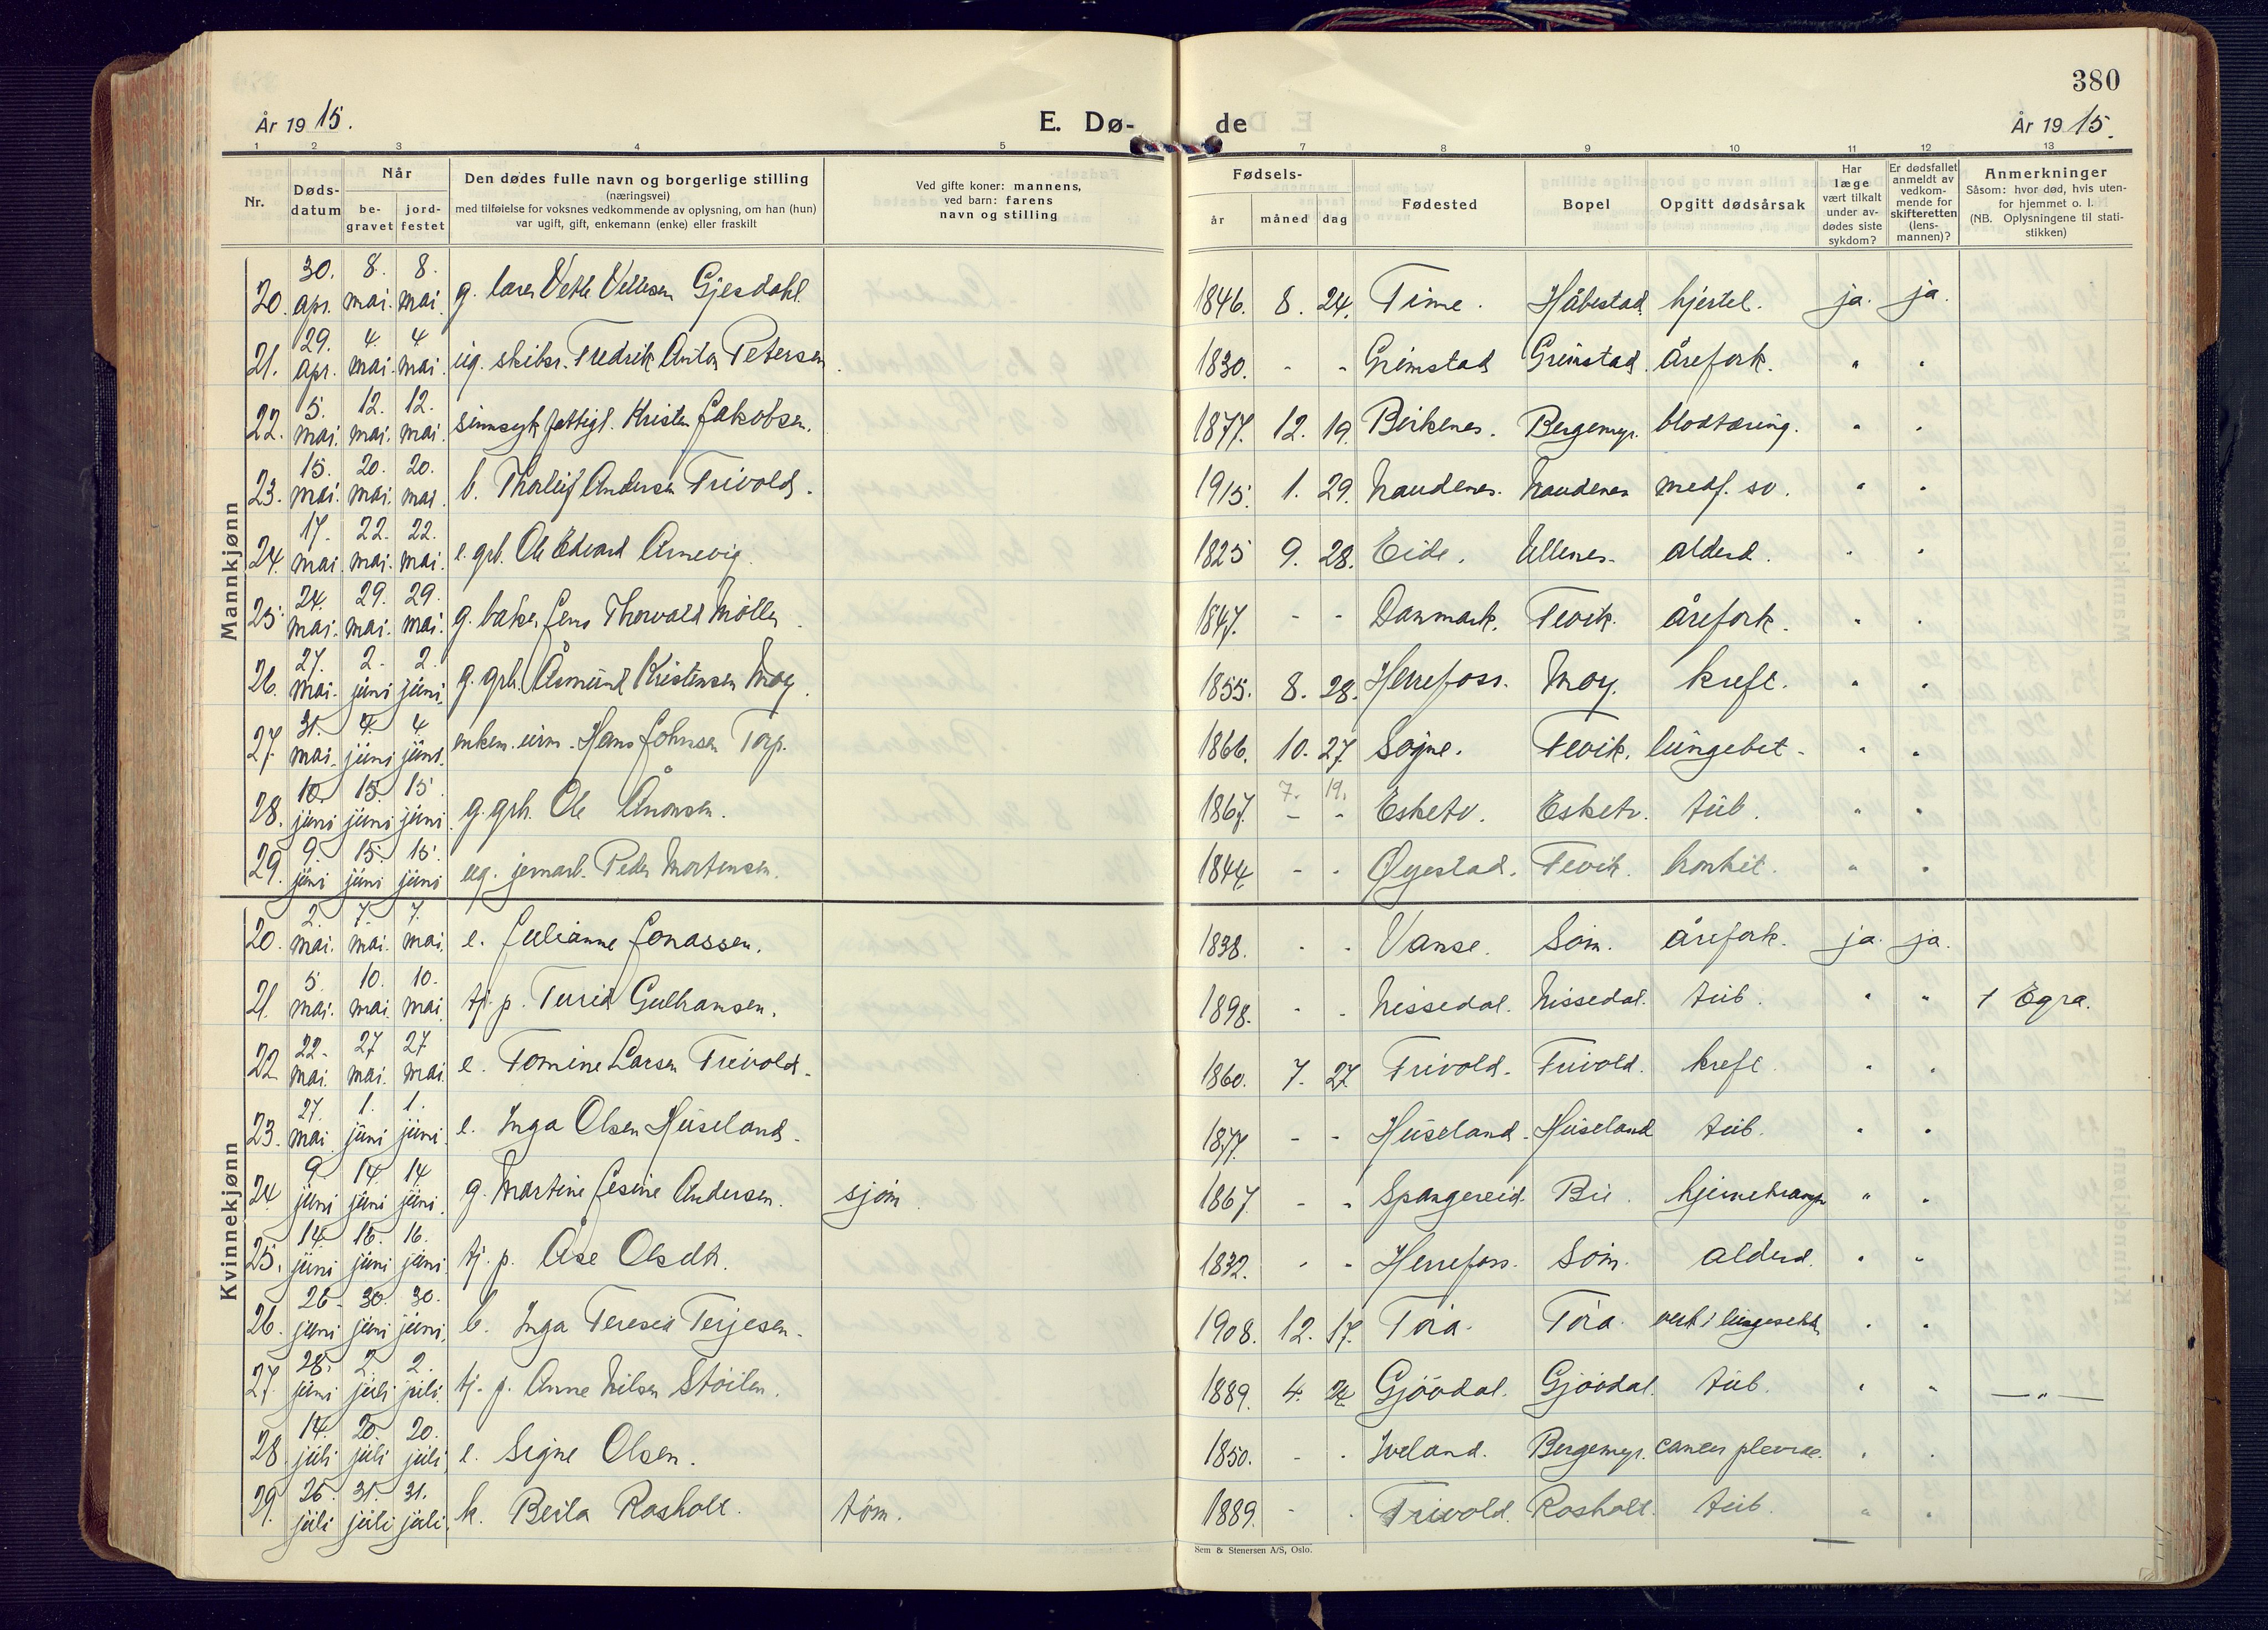 380
År 19 15.
E. Dø-
de
År 19 15.
1 2 3 4 5 7 8 9 10 11 12 13
Nr.
Døds-
datum
Når
be-
gravet
jord-
festet
Den dødes fulle navn og borgerlige stilling
(næringsvei)
med tilføielse for voksnes vedkommende av oplysning, om han (hun)
var ugift, gift, enkemann (enke) eller fraskilt
Ved gifte koner: mannens,
ved barn: farens
navn og stilling
Fødsels-
år
måned
dag
Fødested
Bopel
Opgitt dødsårsak
Har
læge
vært tilkalt
under av-
dødes siste
sykdom?
Er dødsfallet
anmeldt av
vedkom-
mende for
skifteretten
(lens-
mannen)?
Anmerkninger
Såsom: hvor død, hvis uten-
for hjemmet o. l.
(NB. Oplysningene til stati-
stikken)
Mannkjønn
20. 30. apr. 8. mai. 8. mai. g. lærer Vetle Vetlesen Gjesdahl. 1846. 8. 24. Time. Håbestad. hjertel. ja. ja.
21. 29. apr. 4. mai. 4 mai. ug. skibsr. Fredrik Anton Petersen. 1830. - - Grimstad Grimstad. årefork. " "
22. 5. mai. 12. mai. 12. mai. sinnsyk fattigl. Kristen Jakobsen. 1877. 12. 19. Birkenes. Bergemyr. blodtæring. " "
23. 15. mai. 20. mai. 20. mai. b. Thorleif Andersen Trivold. 1915. 1. 29. Naudenes. Naudenes medf. sv. " "
24. 17. mai. 22. mai. 22. mai. e. grb. Ole Edvard Arnevig. 1825 9. 28. Eide. Ullenes. alderd. " "
25. 24. mai. 29. mai. 29. mai. g. baker Jens Thorvald Møller. 1847. - - Danmark. Fevik. årefork. " "
26. 27. mai. 2. juni 2. juni. g. grb. Åsmund Kristensen Moy. 1855. 8. 28. Herrefoss. Moy. kreft. " "
27. 31. mai. 4. juni 4. juni. enkem. Hans Johnsen Torp. 1866. 10. 27. Søgne. Fevik. lungebet. " "
28. 10. juni 15. juni 15. juni. g. grb. Ole Ånonsen. 1867. 7. 19. Esketv. Esketv. tub. " "
29. 9. juni 15. juni 15. juni ug. jernarb. Peder Mortensen. 1844 - - Øyestad. Fevik. bronkit. " "
Kvinnekjønn
20. 2. mai. 7. mai. 7. mai. e. Julianne Jonassen. 1838. - - Vanse. Søm. årefork. ja. ja.
21. 5. mai. 10. mai. 10. mai tj. p. Turid Gulhansen. 1898. - - Nissedal. Nissedal. tub. " " † Egra.
22 22. mai. 27 mai. 27 mai e. Tomine Larsen Trivold. 1860. 7. 27. Trivold. Trivold. kreft. " "
23. 27. mai 1. juni 1. juni. e. Inga Olsen Huseland. 1877. - - Huseland. Huseland tub. " "
24 9 juni 14. juni 14. juni. g. Martine Jesine Andersen. sjøm. 1867. - - Spangereid. Bie. " "
25. 14. juni 16. juni 16. juni. tj. p. Åse Olsdtr. 1832. - - Herrefoss. Søm. alderd. " "
26. 26. juni 30. juni 30. juni. b. Inga Teresia Terjesen. 1908. 12. 17. Tora. Tora. " "
27. 28. juni 2. juli 2. juli. tj. p. Anne Nilsen Støilen. 1889. 4. 24. Gjøvdal. Gjøvdal. tub. " " — " —
28. 14. juli 20. juli 20. juli. e. Signe Olsen. 1850. - - Iveland. Bergemyr. cancer pleurae. " "
29. 26. juli 31. juli 31. juli. k. Berta Rosholt. tøm. 1889. - - Trivold. Rosholt. tub. " "
Sem & Stenersen A/S, Oslo.